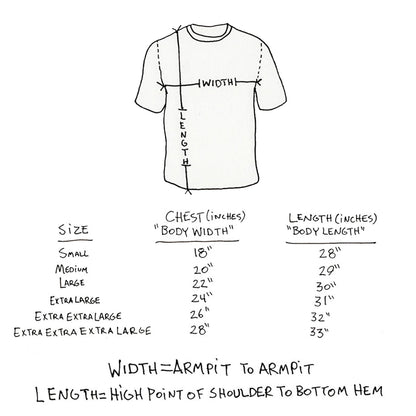 WIDTH
LENGTH
SIZE
CHEST (INCHES)
"BODY WIDTH"
LENGTH (INCHES)
"BODY LENGTH"
SMALL 18" 28"
MEDIUM 20" 29"
LARGE 22" 30"
EXTRA LARGE 24" 31"
EXTRA EXTRA LARGE 26" 32"
EXTRA EXTRA EXTRA LARGE 28" 33"
WIDTH=ARMPIT TO ARMPIT
LENGTH=HIGH POINT OF SHOULDER TO BOTTOM HEM